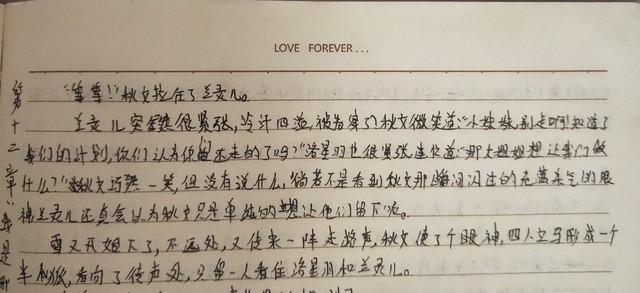 LOVE FOREVER...
"等等!"秋文拉住了兰灵儿。
兰灵儿突然很紧张,冷汗四溢,被秋文微笑道:"小妹妹,别走啊!知道了
我们的计划,你们认为你们还走的了吗?"洛星羽也很紧张连忙道:"那大姐姐想让我们做
什么?"秋文巧然一笑,但没有说什么,倘若不是看到秋文那瞬间闪过的充满杀气的眼
神兰灵儿还真会以为秋文只是单纯的想让他们留下呢。
雪又开始下了,不远处,又传来一阵走路声,秋文使了个眼神,四人立马形成一个
半弧,看向了传声处,只留一人看住洛星羽和兰灵儿。
第十三章:我是那